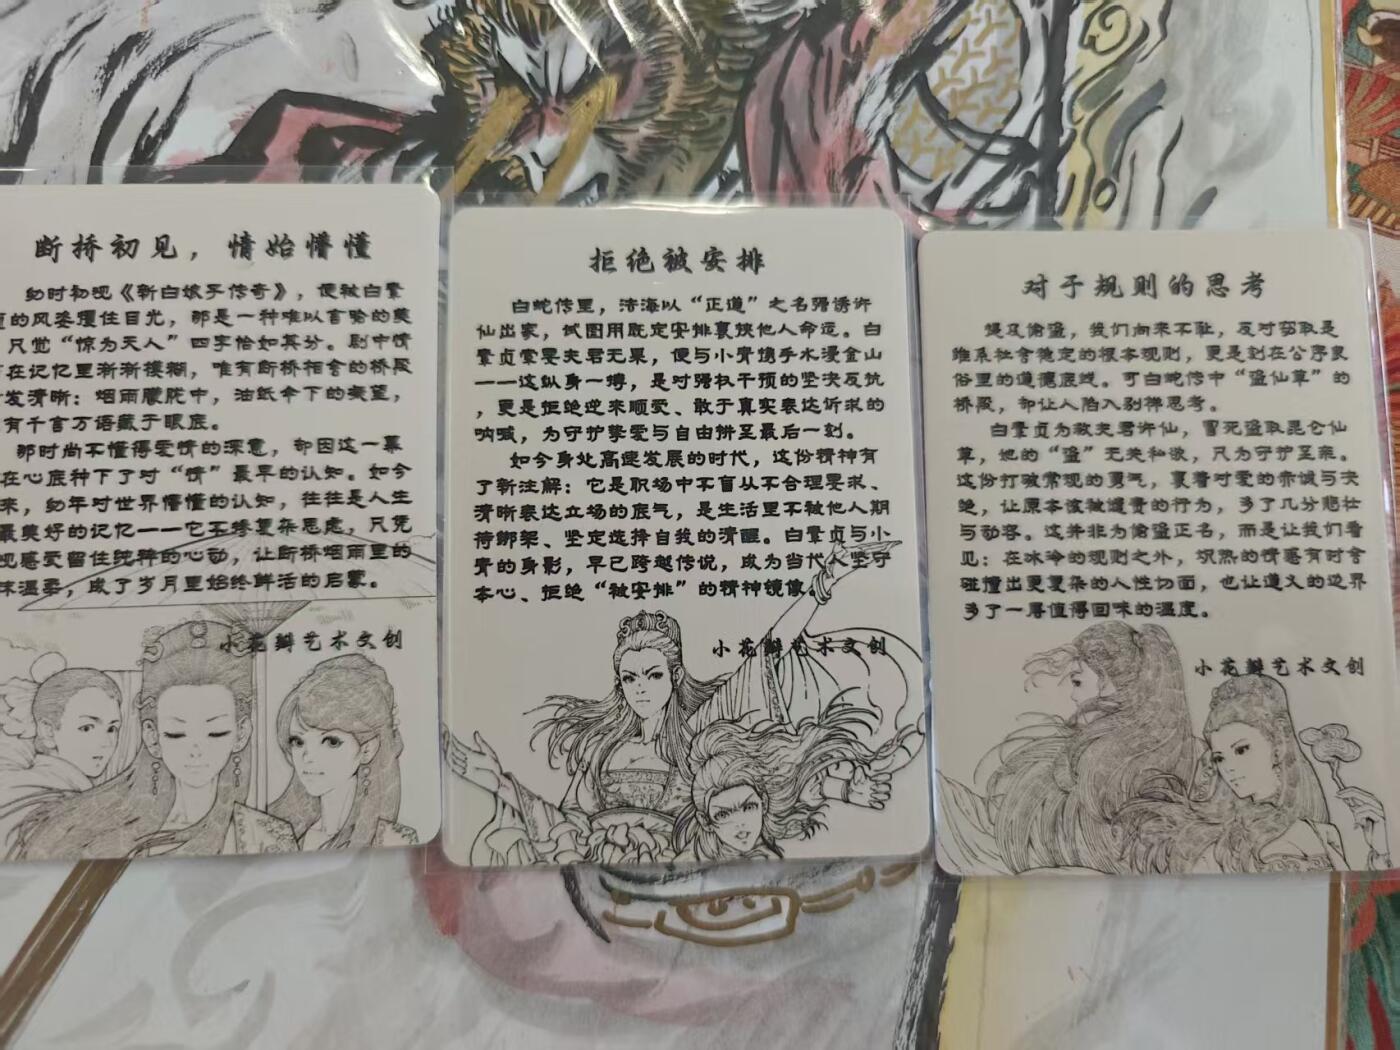 断桥初见，情始懵懂
幼时初观《新白娘子传奇》，便被白素
的风姿攫住目光，那是一种难以言喻的美
只觉“惊为天人”四字恰如其分。剧中情
在记忆里渐渐模糊，唯有断桥相会的桥段
发清晰：烟雨朦胧中，油纸伞下的凝望，
有千言万语藏于眼底。
那时尚不懂得爱情的深意，却因这一幕
在心底种下了对“情”最早的认知。如今
来，幼年对世界懵懂的认知，往往是人生
最美好的记忆——它不掺复杂思虑，只凭
观感爱留住纯粹的心动，让断桥烟雨里的
温柔，成了岁月里始终鲜活的启蒙。
小花瓣艺术文创
拒绝被安排
白蛇传里，法海以“正道”之名强诱许
仙出家，试图用既定安排裹挟他人命运。白
素贞索要夫君无果，便与小青携手水漫金山
——这纵身一搏，是对强权干预的坚决反抗
，更是拒绝逆来顺受、敢于真实表达诉求的
呐喊，为守护挚爱与自由拼至最后一刻。
如今身处高速发展的时代，这份精神有
了新注解：它是职场中不盲从不合理要求、
清晰表达立场的底气，是生活里不被他人期
待绑架、坚定选择自我的清醒。白素贞与小
青的身影，早已跨越传说，成为当代人坚守
本心、拒绝“被安排”的精神镜像。
小花瓣艺术文创
对于规则的思考
提及偷盗，我们向来不耻，反对窃取是
维系社会稳定的根本规则，更是刻在公序良
俗里的道德底线。可白蛇传中“盗仙草”的
桥段，却让人陷入别样思考。
白素贞为救夫君许仙，冒死盗取昆仑仙
草，她的“盗”无关私欲，只为守护至亲。
这份打破常规的勇气，裹着对爱的赤诚与决
绝，让原本该被谴责的行为，多了几分悲壮
与动容。这并非为偷盗正名，而是让我们看
见：在冰冷的规则之外，炽热的情感有时会
碰撞出更复杂的人性切面，也让道义的边界
多了一层值得回味的温度。
小花瓣艺术文创